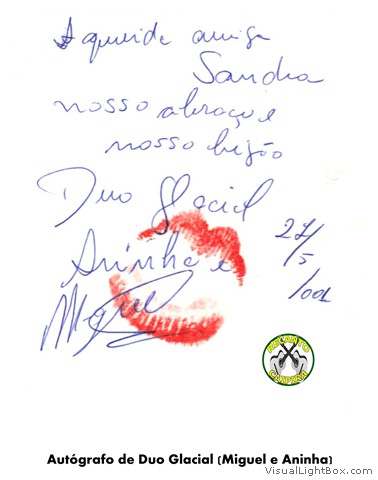 A querida amiga
Sandra
nosso abraço e
nosso beijão
Duo Glacial
Aninha e
Miguel
27/5
/001
RECANTO
CAIPIRA
Autógrafo de Duo Glacial (Miguel e Aninha)
VisualLightBox.com